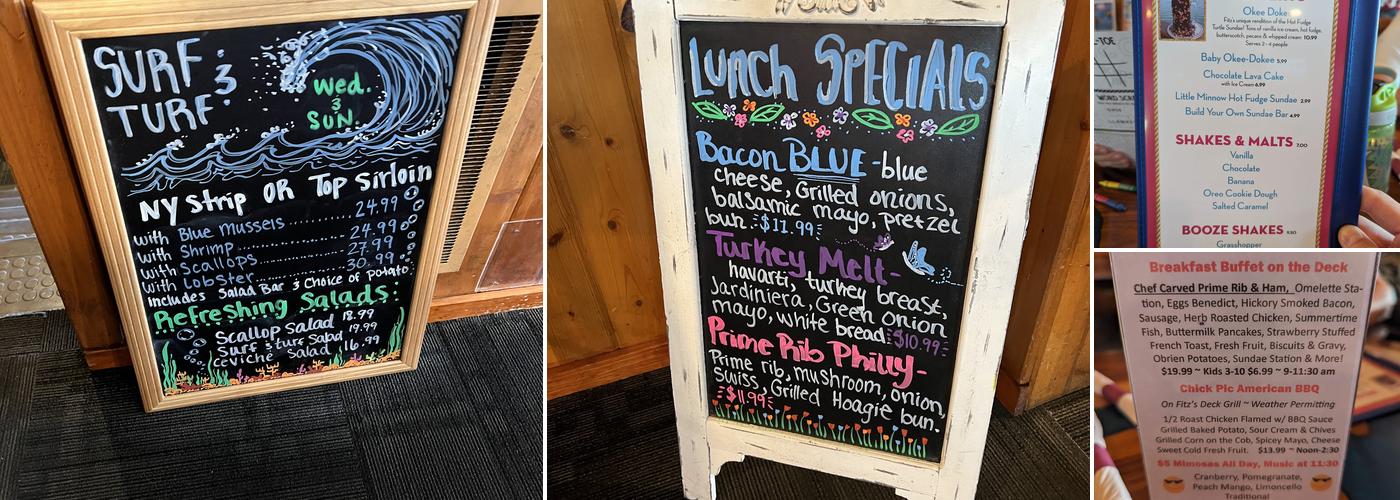 SURF &
TURF
Wed.
&
SUN.
NY Strip OR Top Sirloin
with Blue Mussels ........ 24.99
with Shrimp ............... 24.99
with Scallops ............. 27.99
with Lobster .............. 30.99
includes Salad Bar & Choice of potato
Refreshing Salads:
Scallop Salad 18.99
Surf & turf Salad 19.99
ceviché Salad 16.99
Lunch SPECIALS
Bacon BLUE - blue
cheese, Grilled onions,
balsamic mayo, pretzel
bun $11.99
Turkey Melt-
havarti, turkey breast,
Jardiniera, Green onion
mayo, white bread $10.99
Prime Rib Philly-
Prime rib, mushroom, onion,
Swiss, Grilled Hoagie bun.
$11.99
Okee Dokee
Fitz's unique rendition of the Hot Fudge
Turtle Sundae! Tons of vanilla ice cream, hot fudge,
butterscotch, pecans & whipped cream 10.99
Serves 2 - 4 people
Baby Okee-Dokee 5.99
Chocolate Lava Cake
with Ice Cream 6.99
Little Minnow Hot Fudge Sundae 2.99
Build Your Own Sundae Bar 4.99
SHAKES & MALTS 7.00
Vanilla
Chocolate
Banana
Oreo Cookie Dough
Salted Caramel
BOOZE SHAKES 9.50
Grasshopper
-TOE
WORD SCR
Breakfast Buffet on the Deck
Chef Carved Prime Rib & Ham, Omelette Sta-
tion, Eggs Benedict, Hickory Smoked Bacon,
Sausage, Herb Roasted Chicken, Summertime
Fish, Buttermilk Pancakes, Strawberry Stuffed
French Toast, Fresh Fruit, Biscuits & Gravy,
Obrien Potatoes, Sundae Station & More!
$19.99 ~ Kids 3-10 $6.99 ~ 9-11:30 am
Chick Pic American BBQ
On Fitz's Deck Grill ~ Weather Permitting
1/2 Roast Chicken Flamed w/ BBQ Sauce
Grilled Baked Potato, Sour Cream & Chives
Grilled Corn on the Cob, Spicey Mayo, Cheese
Sweet Cold Fresh Fruit. $13.99 ~ Noon-2:30
$5 Mimosas All Day, Music at 11:30
Cranberry, Pomegranate,
Peach Mango, Limoncello
Traditional